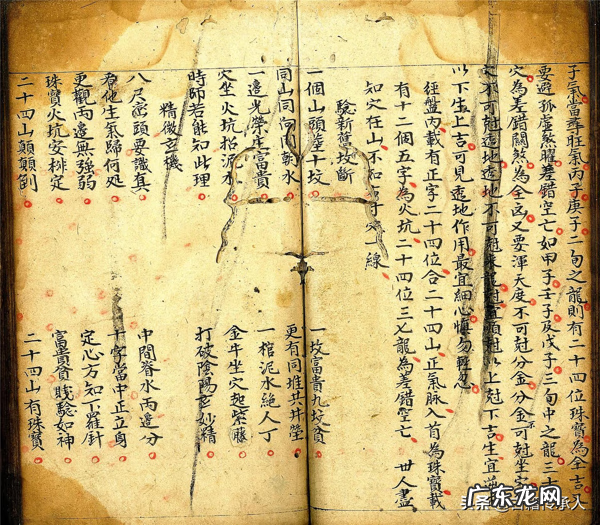 子氣當奪旺氣丙子庚子二旬之龍則有二十四位珠寶為全吉入
要避孤虛煞曜差錯空亡如甲子壬子及戊子三旬中之龍三七
穴為差錯關煞為全凶又要渾天度不可尅分金分金不可尅坐穴
穴不可尅透地透地不可尅來龍以上尅下吉生宜
以下生上吉可見透地作用最宜細心慎勿輕忽
徃盤內載有正字二十四位合二十四山正氣脉入首為珠寶載
有十二個五字為火坑二十四位三七龍為差錯空亡 世人盡
知穴在山不知穴一線
驗新舊坟斷
一個山頭葬十坟 一坟富貴九坟貧
同山同向同朝水 更有同堆共井塋
一邊光榮庄富貴 一棺泥水絕人丁
穴坐火坑招泥水 金牛坐穴起紫藤
時師若能知此理 打破陰陽玄妙精
精微玄機
八尺巒頭要識真 中間脊水兩邊分
看他生氣歸何処 十字當中正立身
更觀兩邊無強弱 定心方知下羅針
珠寶火坑安排定 富貴貧賤驗如神
二十四山顛顛倒 二十四山有珠寶
广东龙网